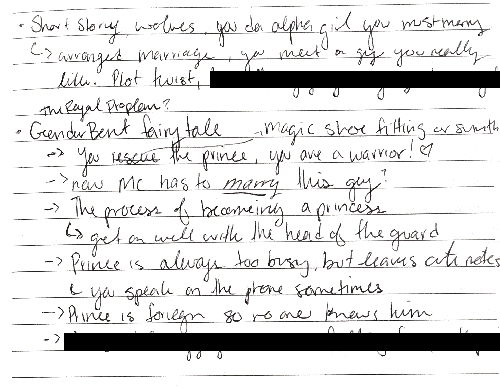 • Short story wolves, you da alpha girl you must marry
↳ arranged marriage, you meet a guy you really
like. Plot twist,
The Royal Problem?
• GenderBent fairytale magic shoe fitting or sumth
-> You rescue the prince, you are a warrior! ♡
-> now MC has to marry this guy?
-> The process of becomeing a princess
↳ get on well with the head of the guard
-> Prince is always too busy, but leaves cute notes
↳ you speak on the phone sometimes
-> Prince is foreign so no one knows him
->